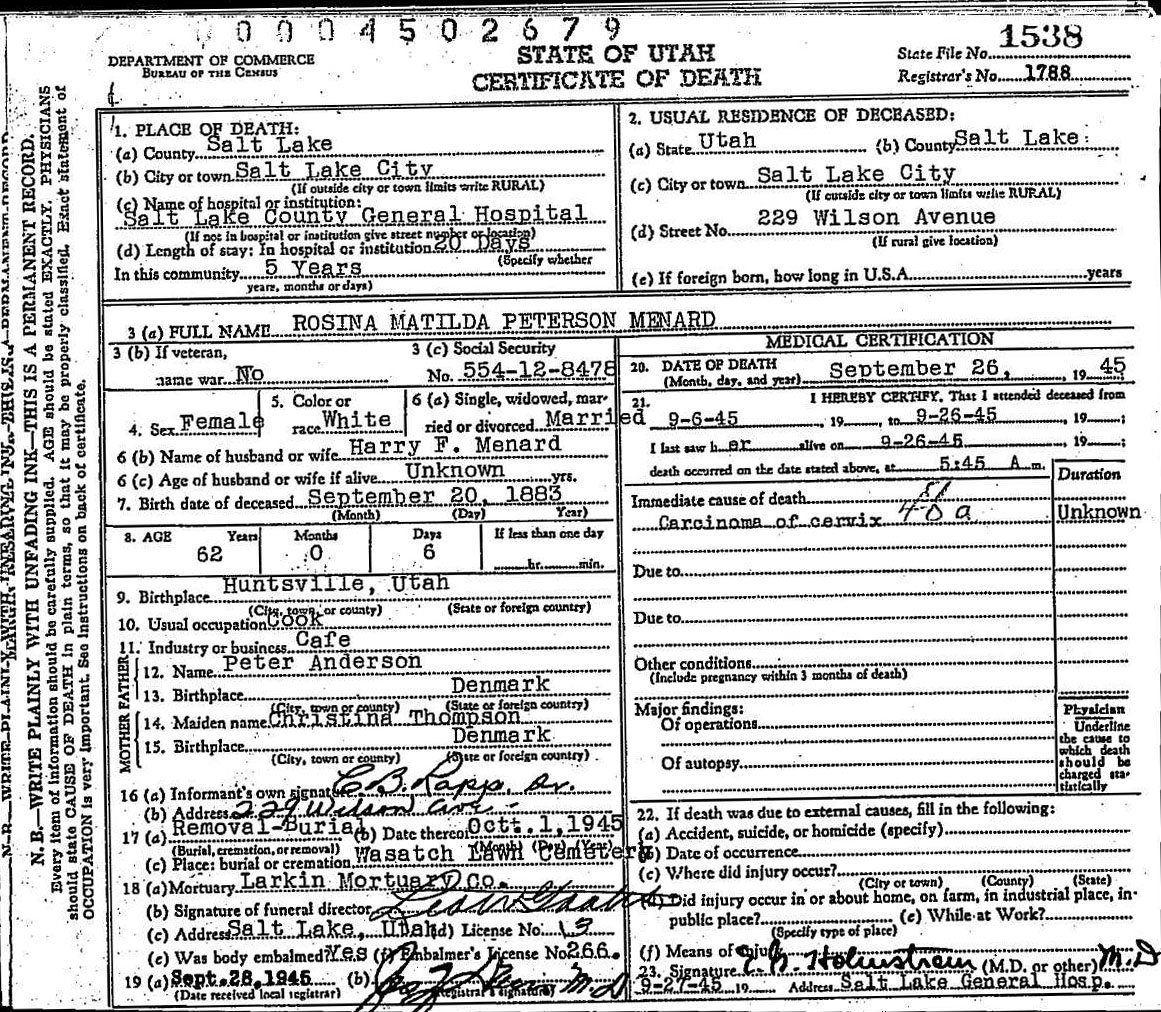 0004502679
DEPARTMENT OF COMMERCE
BUREAU OF THE CENSUS
STATE OF UTAH
CERTIFICATE OF DEATH
State File No. 1538
Registrar's No. 1788
N.B.—WRITE PLAINLY WITH UNFADING INK—THIS IS A PERMANENT RECORD.
Every item of information should be carefully supplied. AGE should be stated EXACTLY. PHYSICIANS
should state CAUSE OF DEATH in plain terms, so that it may be properly classified. Exact statement of
OCCUPATION is very important. See instructions on back of certificate.
1. PLACE OF DEATH:
(a) County Salt Lake
(b) City or town Salt Lake City
(If outside city or town limits write RURAL)
(c) Name of hospital or institution:
Salt Lake County General Hospital
(If not in hospital or institution give street number or location)
(d) Length of stay: In hospital or institution 20 Days
(Specify whether
In this community 5 Years
years, months or days)
2. USUAL RESIDENCE OF DECEASED:
(a) State Utah (b) County Salt Lake
(c) City or town Salt Lake City
(If outside city or town limits write RURAL)
(d) Street No. 229 Wilson Avenue
(If rural give location)
(e) If foreign born, how long in U.S.A. years
3 (a) FULL NAME ROSINA MATILDA PETERSON MENARD
3 (b) If veteran, name war No
3 (c) Social Security No. 554-12-8478
4. Sex Female
5. Color or race White
6 (a) Single, widowed, married or divorced Married
6 (b) Name of husband or wife Harry F. Menard
6 (c) Age of husband or wife if alive Unknown yrs.
7. Birth date of deceased September 20, 1883
(Month) (Day) Year)
8. AGE Years Months Days If less than one day
62 0 6 hr. min.
9. Birthplace Huntsville, Utah
(City, town, or county) (State or foreign country)
10. Usual occupation Cook
11. Industry or business Cafe
FATHER
12. Name Peter Anderson
13. Birthplace Denmark
(City, town or county) (State or foreign country)
MOTHER
14. Maiden name Christina Thompson
15. Birthplace Denmark
(City, town or county) (State or foreign country)
16 (a) Informant's own signature C.B. Rapp Sr.
(b) Address 229 Wilson Ave
17 (a) Removal-Burial (b) Date thereof Octt.1,1945
(Burial, cremation, or removal) (Month) (Day) (Year)
(c) Place: burial or cremation Wasatch Lawn Cemetery
18 (a) Mortuary Larkin Mortuary Co.
(b) Signature of funeral director
(c) Address Salt Lake, Utah (d) License No. 13
(e) Was body embalmed? Yes (f) Embalmer's License No 266.
19 (a) Sept.28,1945 (b) M.D
(Date received local registrar) Registrar's signature)
MEDICAL CERTIFICATION
20. DATE OF DEATH September 26, 19 45
(Month, day, and year)
21. I HEREBY CERTIFY, That I attended deceased from
9-6-45, 19 , to 9-26-45, 19 ;
I last saw h er alive on 9-26-45, 19 ;
death occurred on the date stated above, at 5:45 A m.
Duration
Immediate cause of death
Carcinoma of cervix 48a Unknown
Due to
Due to
Other conditions
(Include pregnancy within 3 months of death)
Major findings:
Of operations
Of autopsy
Physician
Underline
the cause to
which death
should be
charged sta-
tistically
22. If death was due to external causes, fill in the following:
(a) Accident, suicide, or homicide (specify)
(b) Date of occurrence
(c) Where did injury occur?
(City or town) (County) (State)
(d) Did injury occur in or about home, on farm, in industrial place, in-
public place? (e) While at Work?
(Specify type of place)
(f) Means of injury
23. Signature E. B. Holmstrem (M.D. or other) M.D
9-27-45 19 Address Salt Lake General Hosp.